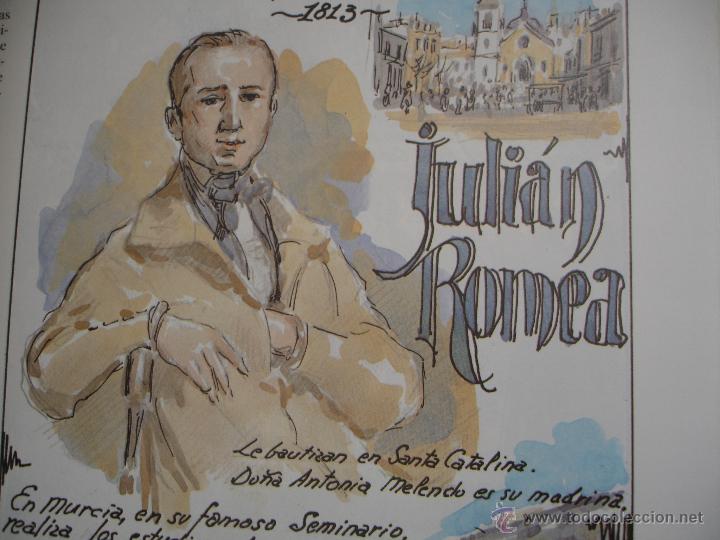 ~1813~
as
i-
e
-
e
Julián
Romea
Le bautizan en Santa Catalina.
Doña Antonia Melendo es su madrina.
En Murcia, en su famoso Seminario.
realiza los
todocoleccion.net